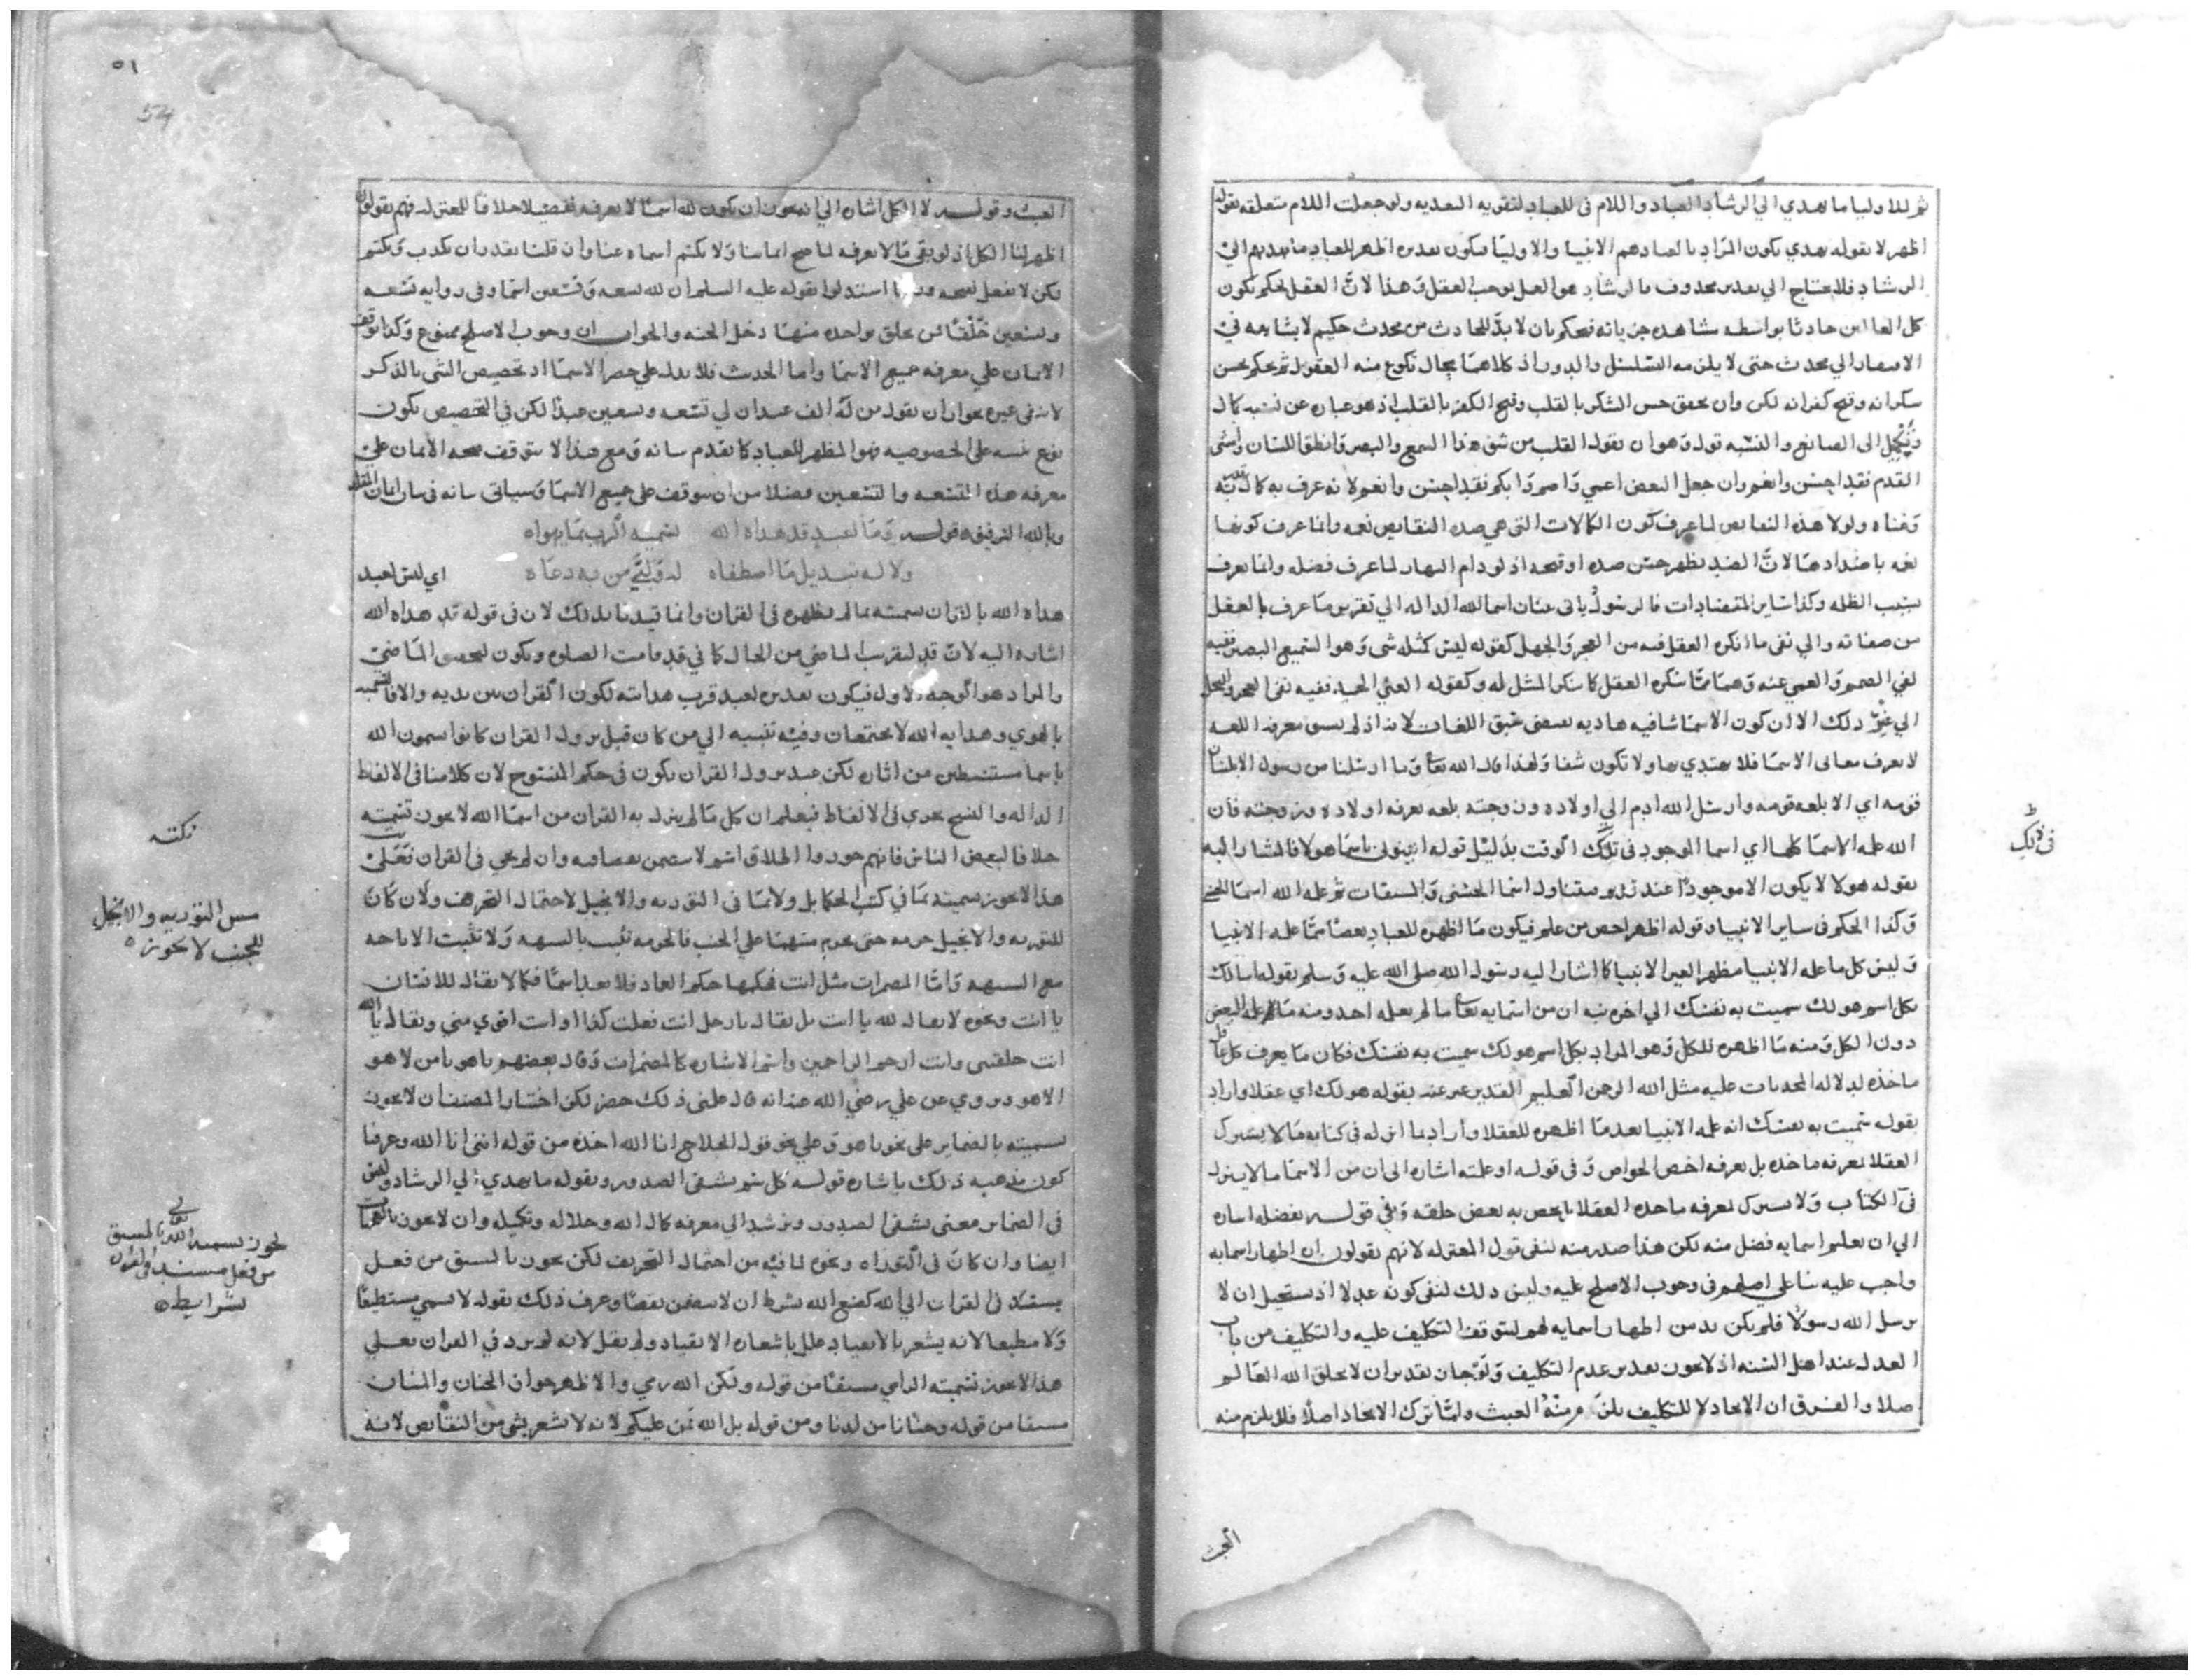 ثم للاوليا ما يهدي الي الرشاد العباد واللام في للعباد لتقويه التعديه ولو جعلت اللام متعلقه بقوله
اظهر لا بقوله يهدي يكون المراد بالعباد هم الانبيا والاوليا فيكون تقديره اظهر للعباد ما يهديهم الي
الرشاد فلا يحتاج الي تقدير محذوف والرشاد هو العمل بموجب العقل وهذا لان العقل يحكم بكون
كل العالمين حادثا بواسطه مشاهده جزياته فيحكم بان لا بد للحادث من محدث حكيم لا يشابهه في
الافتقار الي محدث حتى لا يلزمه التسلسل والدور اذ كلاهما محال تكوع منه العقول ثم يحكم بحسن
شكرانه وقبح كفرانه لكن وان تحقق حسن الشكر بالقلب وقبح الكفر بالقلب اذ هو عباره عن نسبه كمال
الى الصانع والنسبه قول وهو ان يقول القلب من شق هذا السمع والبصر وانطق اللسان وامشى
القدم فقد احسن وانعم وان جعل البعض اعمي واصم وابكم فقد احسن وانعم لانه عرف به كمال
وغناه ولولا هذه النقايص لما عرف كون الكمالات التى هى ضد النقايص نعمه وانما عرف كونها
نعمه باضدادها لان الضد يظهر حسن ضده او قبحه اذ لو دام النهار لما عرف فضله وانما يعرف
بسبب الظلمه وكذا ساير المتضادات فالرسول ياتى ببيان اسما الله الداله الي تقرير ما عرف بالعقل
من صفاته والي نفى ما انكره العقل فيه من العجز والجهل كقوله ليس كمثله شى وهو السميع البصير ففيه
نفي الصمم والعمى عنه وهما مما ينكره العقل كما ينكر المثل له وكقوله الغني الحميد ففيه نفى العجز والبخل
الي غير ذلك الا ان كون الاسما شافيه هاديه يقتضى سبق اللغات لانه اذ لم يسبق معرفه اللغه
لا يعرف معانى الاسما فلا يهتدي بها ولا تكون شفا ولهذا قال الله تعا وما ارسلنا من رسول الا بلسان
قومه اي الا بلغه قومه وارسل الله ادم الي اولاده وزوجته بلغه يعرفه اولاده وزوجته فان
الله علمه الاسما كلها اي اسما الموجود في تلك الوقت بدليل قوله انبيونى باسما هولا فالمشار اليه
بقوله هولا لا يكون الا موجودا عند تناول اسما الحسنى والمسبقات ثم علمه الله اسما الحسنى
وكذا الحكم فى ساير الانبيا وقوله اظهر اخص من علم فيكون ما اظهره للعباد بعضا مما علمه الانبيا
وليس كل ما علمه الانبيا مظهرا لغير الانبيا كما اشار اليه رسول الله صلى الله عليه وسلم بقوله اسالك
بكل اسم هو لك سميت به نفسك الي اخره نبه ان من اسمايه تعا ما لم يعلمه احد ومنه ما علمه البعض
دون الكل ومنه ما اظهره للكل وهو المراد بكل اسم هو لك سميت به نفسك فكان ما يعرف كل عاقل
ماخذه لدلاله المحدثات عليه مثل الله الرحمن العليم القدير عبر عنه بقوله هو لك اي عقلا واراد
بقوله سميت به نفسك انه علمه الانبيا بعد ما اظهره للعقلا واراد بما انزله في كتابه ما لا يشترك
العقلا بمعرفه ماخذه بل يعرفه اخص الخواص وفى قوله او علمته اشاره الى ان من الاسما ما لا ينزل
فى الكتاب ولا يشترك لمعرفه ماخذه العقلا بل يخص به بعض خلقه وفي قوله بفضله اشاره
الي ان تعليم اسمايه فضل منه لكن هذا صدر منه لنفى قول المعتزله لانهم يقولون ان اظهار اسمايه
واجب عليه بنا علي اصلهم فى وجوب الاصلح عليه وليس ذلك لنفى كونه عدلا اذ يستحيل ان لا
يرسل الله رسولا فلم يكن بد من اظهار اسمايه لهم ليتوقف التكليف عليه والتكليف من باب
العدل عند اهل السنه اذ لا يجوز تقدير عدم التكليف ولو جاز تقدير ان لا يخلق الله العالم
صلا والفرق ان الايجاد لا للتكليف يلزم منه العبث واما ترك الايجاد اصلا فلا يلزم منه
العبث
في ذلك
٥١
54
العبث وقوله لا الكل اشاره الي انه يجوز ان يكون لله اسما لا نعرفه تفصيلا خلافا للمعتزله فهم يقولون
اظهر لنا الكل اذ لو بقى ما لا نعرفه لما صح ايماننا ولا يكتم اسماه عنا وان قلنا يقدر ان يكذب ويكتم
لكن لا يفعل لقبحه استدلوا بقوله عليه السلم ان لله تسعه وتسعين اسما وفى روايه تسعه
وتسعين خلقا من تخلق بواحده منها دخل الجنه والجواب ان وجوب الاصلح ممنوع وكذا توقف
الايمان علي معرفه جميع الاسما واما الحديث فلا يدل علي حصر الاسما اذ تخصيص الشى بالذكر
لا ينفى غيره بجواز ان يقول من له الف عبد ان لي تسعه وتسعين عبدا لكن في التخصيص يكون
نوع نسبه على الخصوصيه فهو المظهر للعباد كما تقدم بيانه ومع هذا لا يتوقف صحه الايمان علي
معرفه هذه التسعه والتسعين فضلا من ان يتوقف على جميع الاسما وسياتى بيانه فى بيان ايمان المقلد
وبالله التوفيق قوله وما لعبد قد هداه الله تسميه الرب بما يهواه
ولا له تبديل ما اصطفاه له وبلتي من به دعاه اي ليس لعبد
هداه الله بالقران تسميته بما لم يظهره فى القران وانما قيدنا بذلك لان فى قوله قد هداه الله
اشاره اليه لان قد لتقريب الماضي من الحال كما في قد قامت الصلوه ويكون لمحض الماضي
والمراد هو الوجه الاول فيكون تقديره لعبد قرب هدايته لكون القران بين يديه والا فالتسميه
بالهوي وهدايه الله لا يجتمعان وفيه تنبيه الي من كان قبل نزول القران كانوا يسمون الله
باسما مستنبطين من اثاره لكن عند نزول القران يكون فى حكم المنسوخ لان كلامنا فى الالفاظ
الداله والنسخ يجري فى الالفاظ فيعلم ان كل ما لم ينزل به القران من اسما الله لا يجوز تسميته
خلافا لبعض الناس فانهم جوزوا اطلاق اسم لا يتضمن نقصا فيه وان لم يجي فى القران فعلى
هذا لا يجوز تسميته بما في كتب الحكما بل ولا بما فى التوريه والانجيل لاحتمال التحريف ولان كان
للتوريه والانجيل حرمه حتى يحرم مسهما علي الجنب فالحرمه تثبت بالشبهه ولا تثبت الاباحه
مع الشبهه واما المضمرات مثل انت فحكمها حكم العاد فلا يعد اسما فكما لا يقال للانسان
يا انت ونحوه لا يقال لله يا انت بل يقال يا رجل انت فعلت كذا او انت اقوي مني ويقال يا الله
انت خلقتنى وانت ارحم الراحمين واسم الاشاره كالمضمرات وقال بعضهم يا هو يا من لا هو
الا هو وروي عن علي رضي الله عنه انه قال علمنى ذلك خضر لكن اختار المصنف ان لا يجوز
تسميته بالضماير على نحو يا هو وعلي نحو قول الحلاج انا الله اخذه من قوله اننى انا الله وعرفنا
كون مذهبه ذلك باشاره قوله كل شم يشفى الصدور وبقوله ما يهدي الي الرشاد وليس
فى الضماير معنى يشفى الصدور ويرشد الي معرفه كمال الله وجلاله وتكميله وان لا يجوز
ايضا وان كان فى التوراه ونحوه لما فيه من احتمال التحريف لكن يجوز بالمسبق من فعل
يستند فى القران الي الله كصنع الله بشرط ان لا يتضمن نقصا وعرف ذلك بقوله لا تسمى مستطيعا
ولا مطيعا لانه يشعر بالانقياد علل باشعاره الانقياد ولم يقل لانه لم يرد في القران فعلي
هذا لا يجوز تسميته الرامي مسبقا من قوله ولكن الله رمي والاظهر جواز الحنان والمنان
مسبقا من قوله وحنانا من لدنا ومن قوله بل الله يمن عليكم لانه لا يشعر بشى من النقايص لانه
نكته
مس التوريه والانجيل
للجنب لا يجوز
يجوز تسميه الله تعالي بالمسبق
من فعل مسند فى القران
بشرايطه